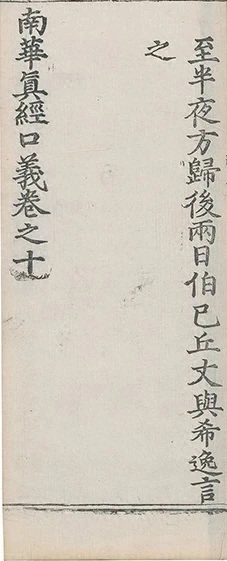 至半夜方歸後兩日伯已丘丈與希逸言
之
南華眞經口義卷之十